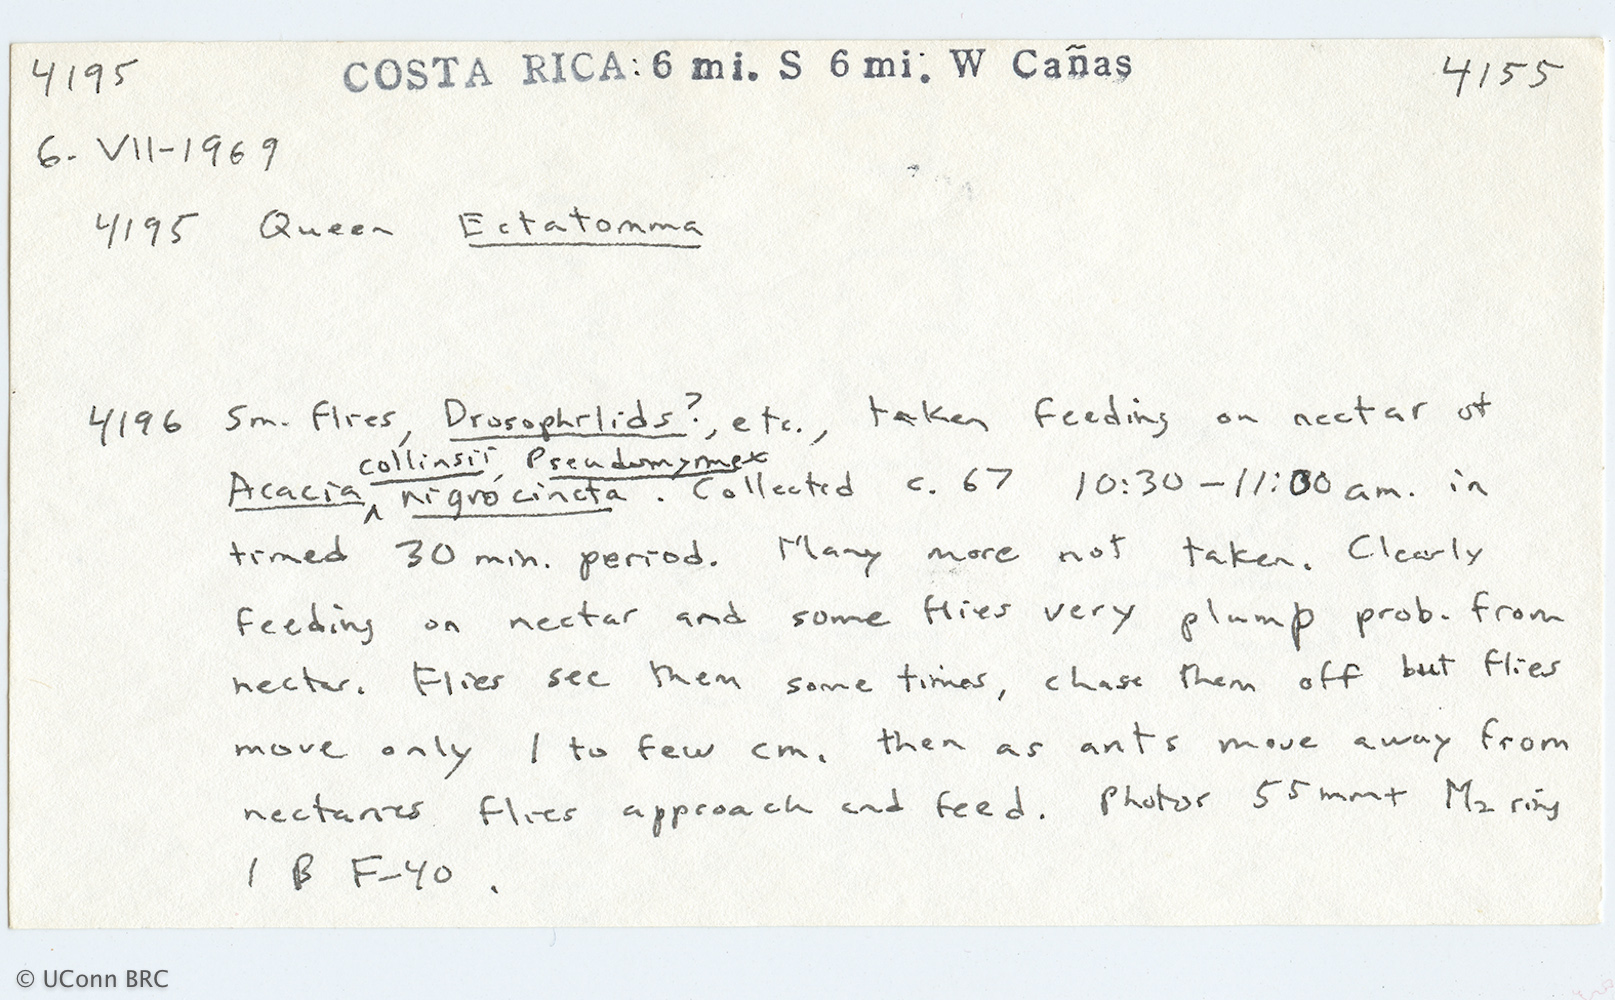 4195 COSTA RICA: 6 mi. S 6 mi. W Cañas 4155
6. VII-1969
4195 Queen Ectatomma
4196 Sm. flies, Drosophilids?, etc., taken feeding on nectar of
collinsii, Pseudomyrmex
Acacia ^ nigrocincta. Collected c. 67 10:30-11:00 am. in
timed 30 min. period. Many more not taken. Clearly
feeding on nectar and some flies very plump prob. from
nectar. Flies see them some times, chase them off but flies
move only 1 to few cm. then as ants move away from
nectaries flies approach and feed. Photos 55mm + M2 ring
1 B F-40.
© UConn BRC